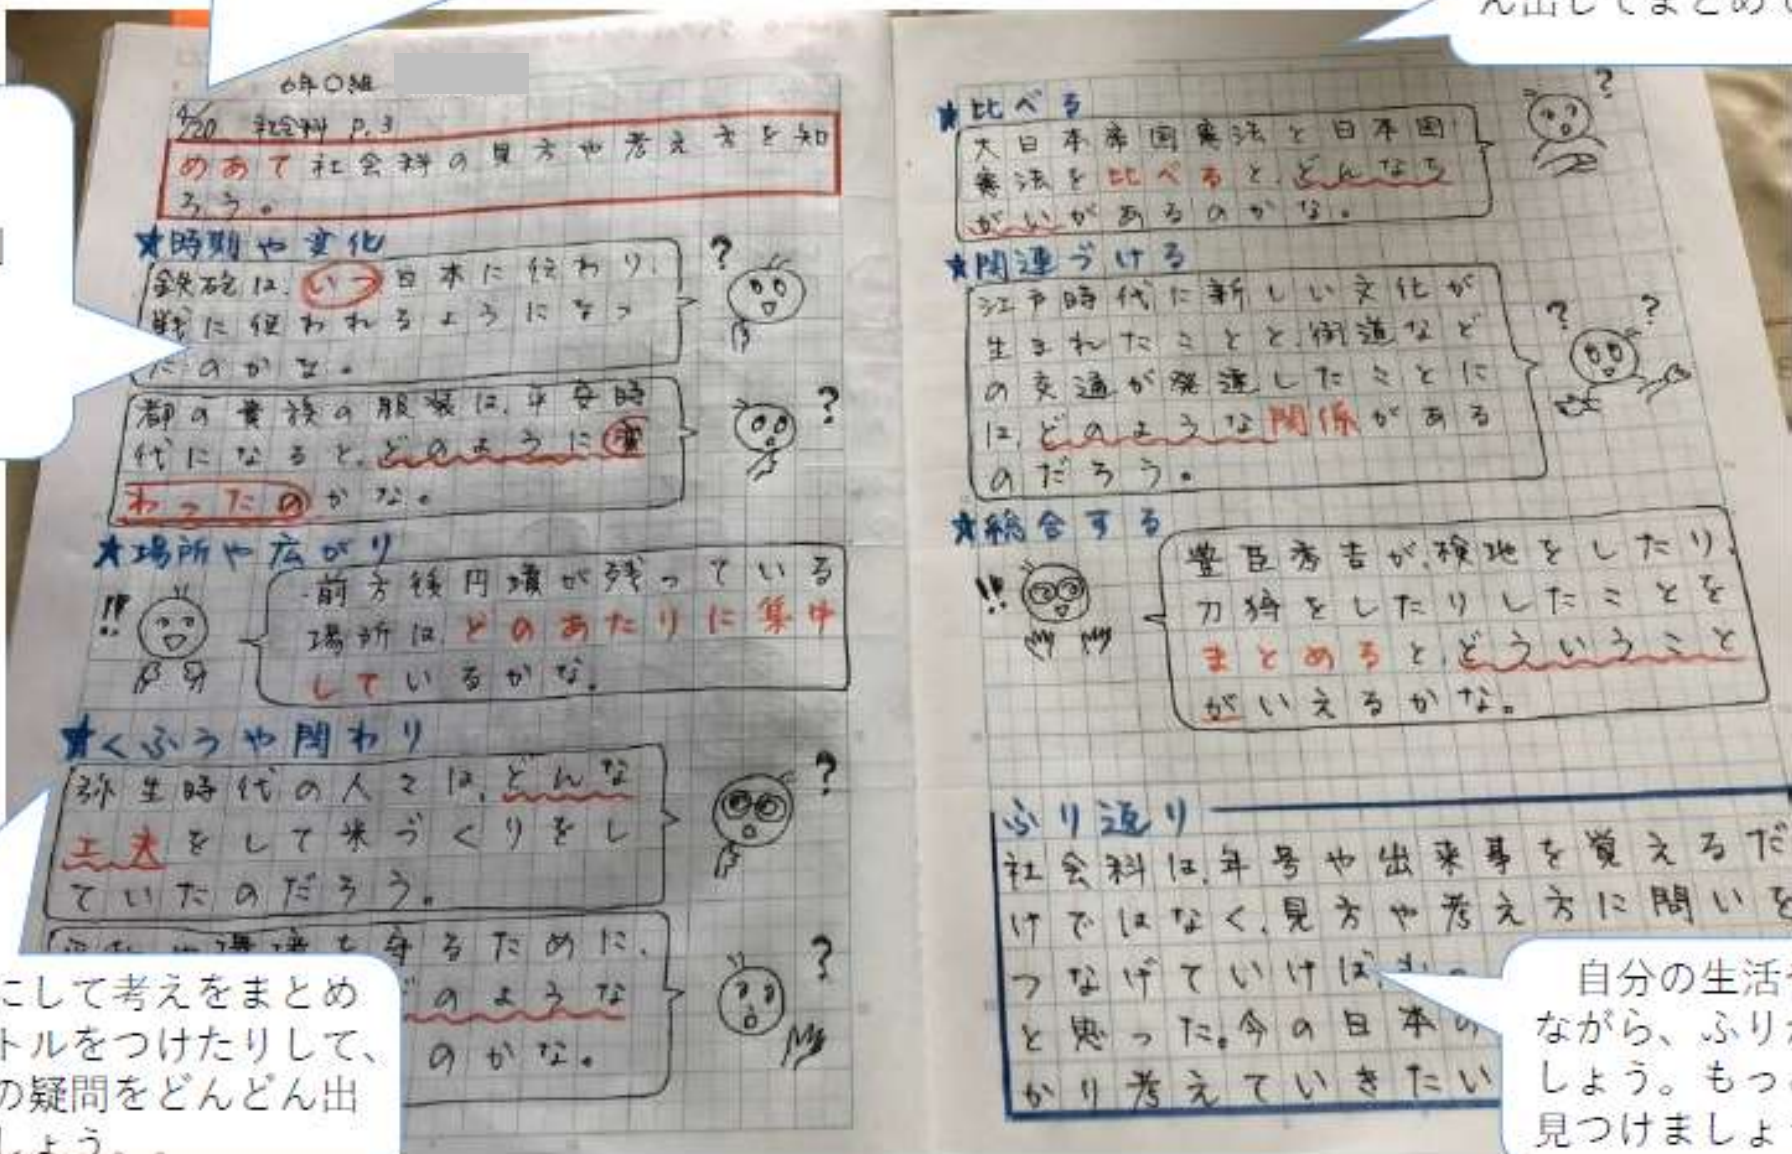 6年〇組
4/20 社会科 P.3
めあて社会科の見方や考え方を知
ろう。
★時期や変化
鉄砲は、いつ日本に伝わり、
戦に使われるようになっ
たのかな。
都の貴族の服装は、平安時
代になると、どのように変
わったのかな。
★場所や広がり
前方後円墳が残っている
場所は、どのあたりに集中
しているかな。
★くふうや関わり
弥生時代の人々は、どんな
工夫をして米づくりをし
ていたのだろう。
環境を守るために、
どのような
のかな。
にして考えをまとめ
トルをつけたりして、
の疑問をどんどん出
しょう。
ん出してまとめ
★比べる
大日本帝国憲法と日本国
憲法を比べると、どんなち
がいがあるのかな。
★関連づける
江戸時代に新しい文化が
生まれたことと、街道など
の交通が発達したことに
は、どのような関係がある
のだろう。
★総合する
豊臣秀吉が、検地をしたり、
刀狩をしたりしたことを
まとめると、どういうこと
がいえるかな。
ふり返り
社会科は、年号や出来事を覚えるだ
けではなく、見方や考え方に問いを
つなげていけば
と思った。今の日本の
かり考えていきたい
自分の生活
ながら、ふり
しょう。もっ
見つけましょ